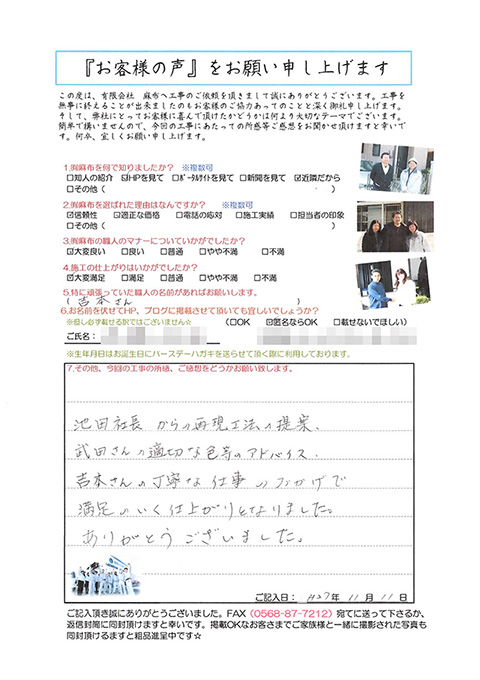 『お客様の声』をお願い申し上げます
この度は、有限会社 麻布へ工事のご依頼を頂きまして誠にありがとうございます。工事を
無事に終えることが出来ましたのもお客様のご協力あってのことと深く御礼申し上げます。
そして、弊社にとってお客様に喜んで頂けたかどうかは何より大切なテーマでございます。
簡単で構いませんので、今回の工事にあたっての所感等ご感想をお聞かせ頂けますと幸いで
す。何卒、宜しくお願い申し上げます。
1.㈲麻布を何で知りましたか? ※複数可
□知人の紹介 ☑HPを見て □ポータルサイトを見て □新聞を見て ☑近隣だから
□その他( )
2.㈲麻布を選ばれた理由はなんですか? ※複数可
☑信頼性 □適正な価格 □電話の応対 □施工実績 □担当者の印象
□その他( )
3.㈲麻布の職人のマナーについていかがでしたか?
☑大変良い □良い □普通 □やや不満 □不満
4.施工の仕上がりはいかがでしたか?
☑大変満足 □満足 □普通 □やや不満 □不満
5.特に頑張っていた職人の名前があればお願いします。
( 吉本さん )
6.お名前を伏せてHP、ブログに掲載させて頂いても宜しいでしょうか?
※但し必ず載せる訳ではございません☆ (□OK ☑匿名ならOK □載せないでほしい)
ご氏名:
※生年月日はお誕生日にバースデーハガキを送らせて頂く際に利用しております。
7.その他、今回の工事の所感、ご感想をどうかお願い致します。
池田社長 からの再現工法の提案、
武田さんの適切な色等のアドバイス、
吉本さんの丁寧な仕事のおかげで
満足のいく仕上がりとなりました。
ありがとうございました。
ご記入日: H27年 11月 11日
ご記入頂き誠にありがとうございました。FAX(0568-87-7212)宛てに送って下さるか、
返信封筒に同封頂けますと幸いです。掲載OKなお客さまでご家族様と一緒に撮影された写真も
同封頂けますと粗品進呈中です☆